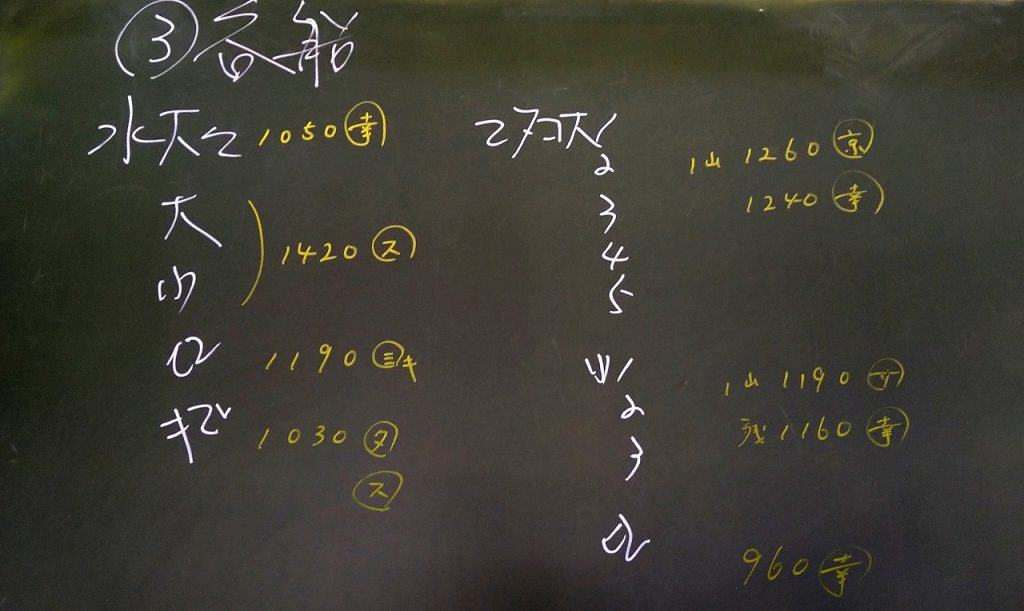 ③谷船
水天こ 1050 幸
大
小
1420 ス
ロ 1190 三キ
キズ 1030 タ
ス
こタコ大1
2 1山 1260 京
3 1240 幸
4
5
小1 1山 1190
2 残 1160 幸
3
960 幸